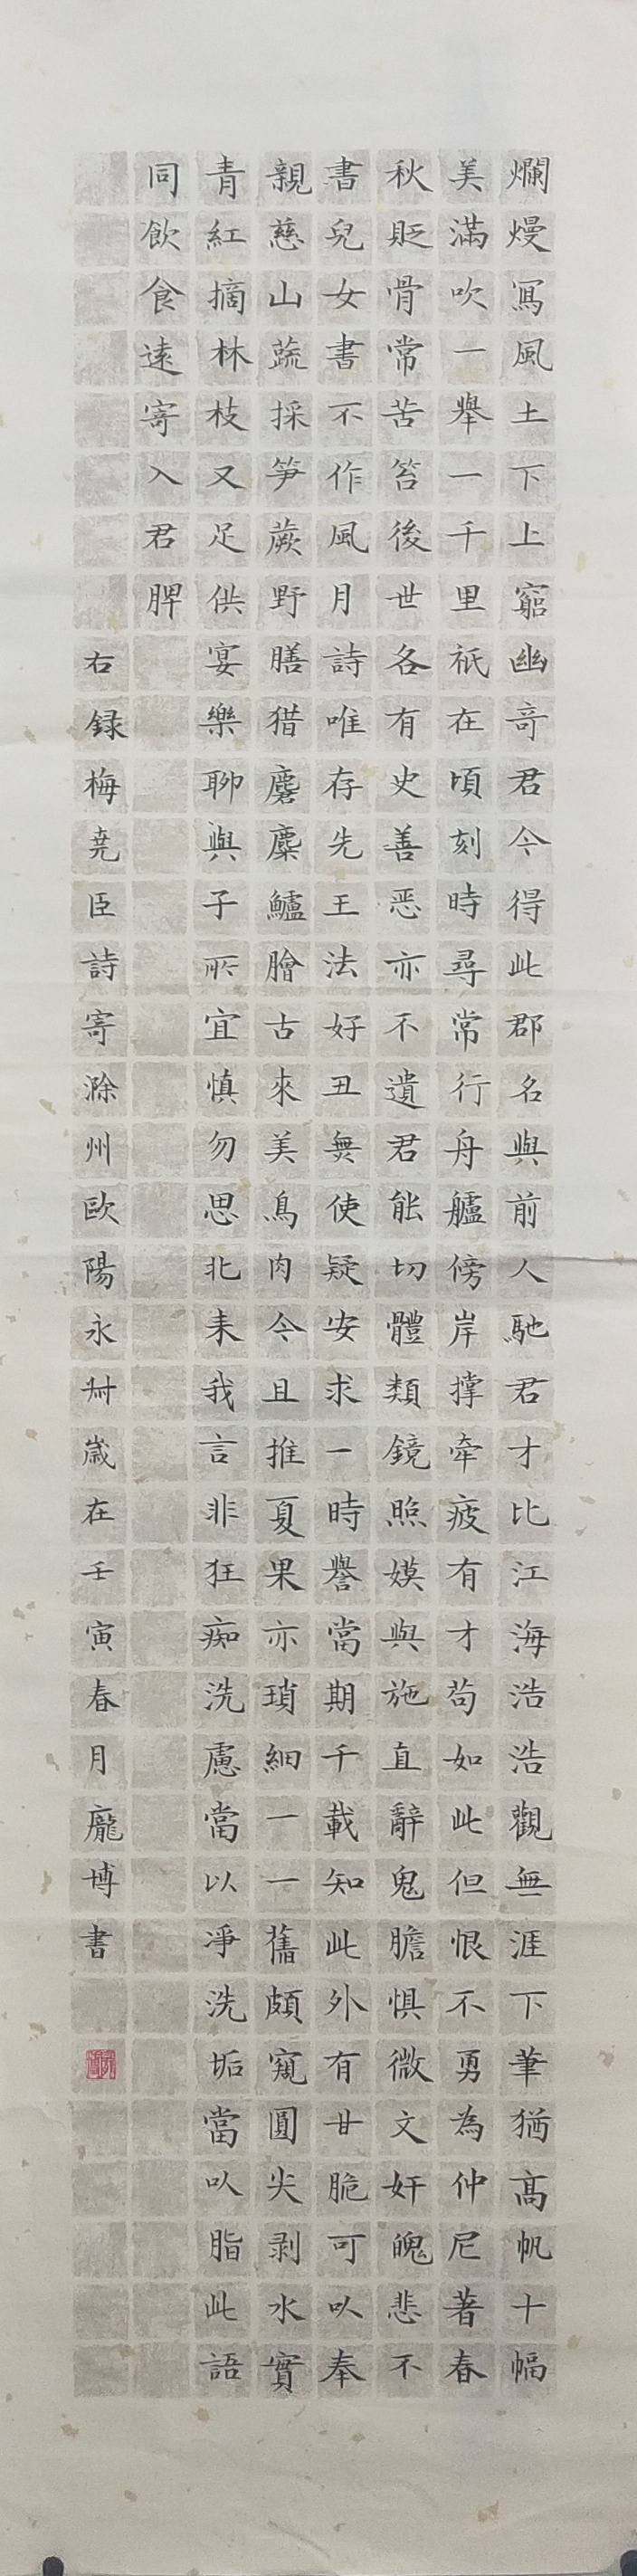 爛熳寫風土下上窮幽奇君今得此郡名與前人馳君才比江海浩浩觀無涯下筆猶高帆十幅
美滿吹一舉一千里祇在頃刻時尋常行舟艫傍岸撐牽疲有才苟如此但恨不勇為仲尼著春
秋貶骨常苦笞後世各有史善惡亦不遺君能切體類鏡照嫫與施直辭鬼膽惧微文奸魄悲不
書兒女書不作風月詩唯存先王法好丑無使疑安求一時譽當期千載知此外有甘脆可以奉
親慈山蔬採笋蕨野膳猎麏麋鱸膾古來美鳥肉今且推夏果亦瑣細一一舊頗窺圓尖剥水實
青紅摘林枝又足供宴樂聊與子所宜慎勿思北来我言非狂痴洗慮當以净洗垢當以脂此語
同飲食遠寄入君脾
右録梅尭臣詩寄滁州歐陽永叔歳在壬寅春月龐博書